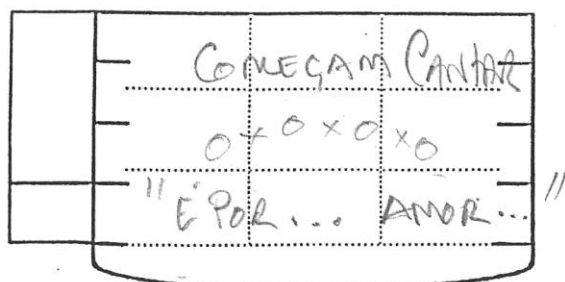 COMEÇAM CANTAR
O X O X O X O
"É POR... AMOR..."